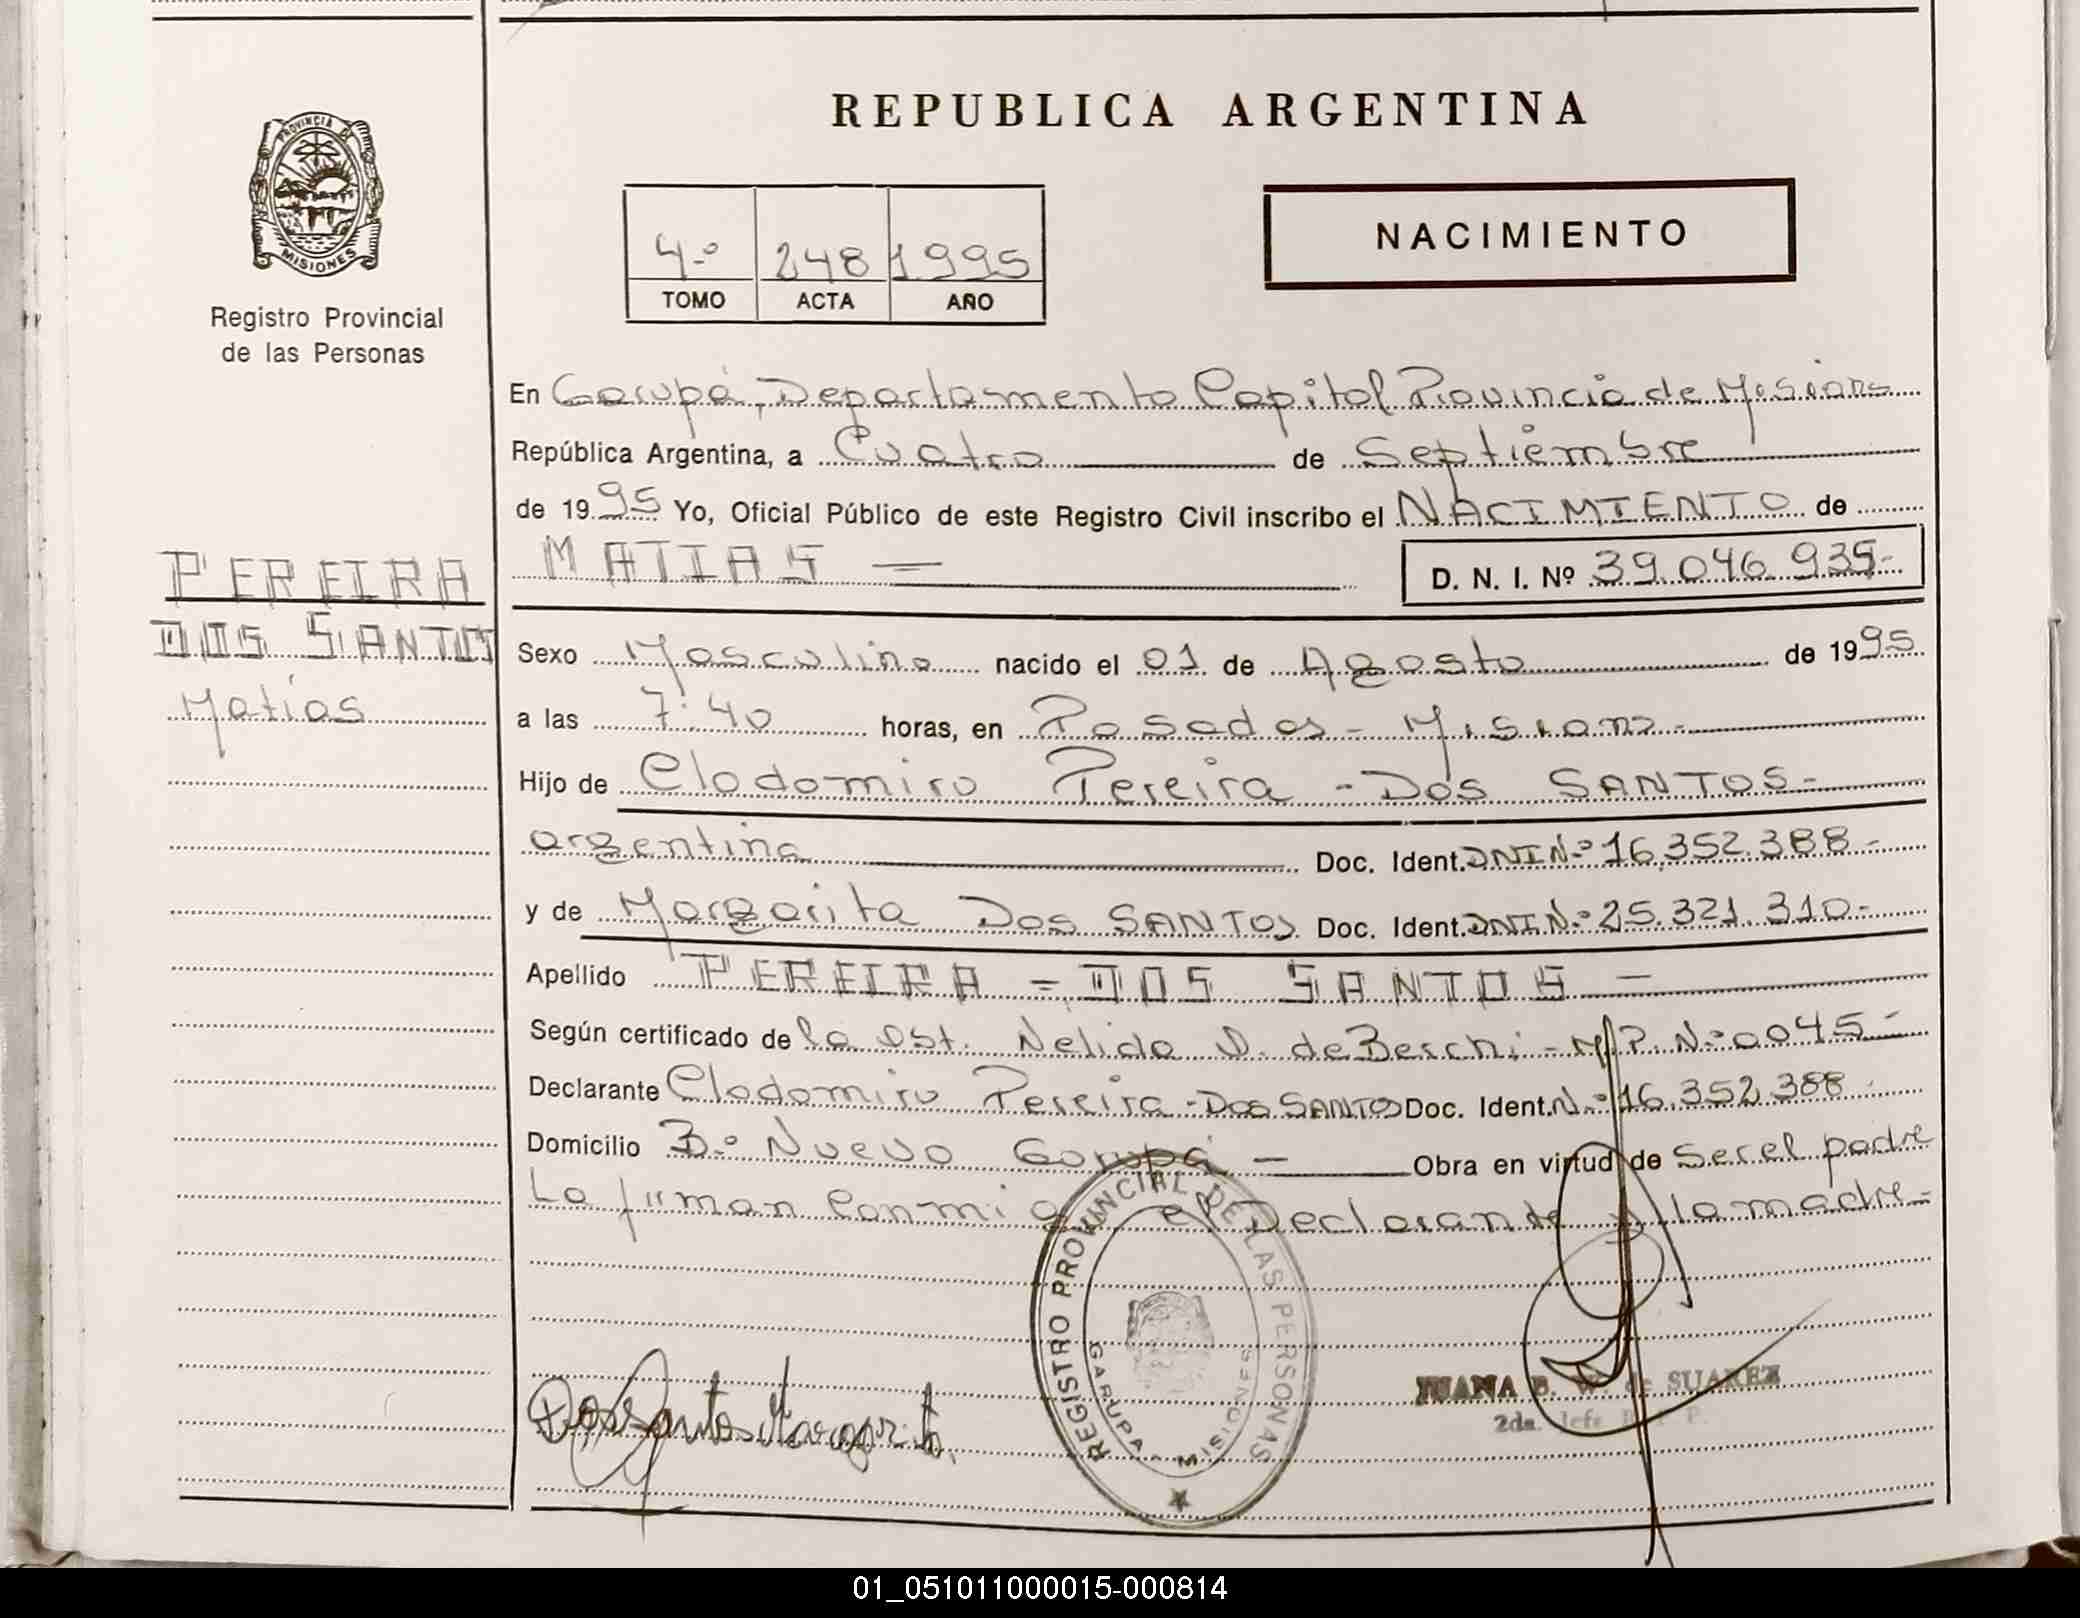 REPUBLICA ARGENTINA
PROVINCIA DE
MISIONES
Registro Provincial
de las Personas
4º 248 1995
TOMO ACTA AÑO
NACIMIENTO
En Garupá, Departamento Capital Provincia de Misiones
República Argentina, a Cuatro de Septiembre
de 1995 Yo, Oficial Público de este Registro Civil inscribo el NACIMIENTO de
MATIAS —
D. N. I. Nº 39.046.935-
PEREIRA
DOS SANTOS
Matías
Sexo Masculino nacido el 01 de Agosto de 1995
a las 7:40 horas, en Posadas - Misiones-
Hijo de Clodomiro Pereira - Dos SANTOS-
argentina Doc. Ident. DNI Nº 16.352.388-
y de Margarita Dos SANTOS Doc. Ident. DNI Nº 25.321.310-
Apellido PEREIRA = DOS SANTOS —
Según certificado de la Ost. Nelida D. de Beschi - M.P. Nº 0045-
Declarante Clodomiro Pereira - Dos SANTOS Doc. Ident. Nº 16.352.388
Domicilio Bº Nuevo Garupá — Obra en virtud de ser el padre
La firman conmigo el Declarante y la madre-
REGISTRO PROVINCIAL DE LAS PERSONAS
GARUPA - MISIONES
Dos Santos Margarita
JUANA B. W. de SUAREZ
2da. Jefe
01_051011000015-000814